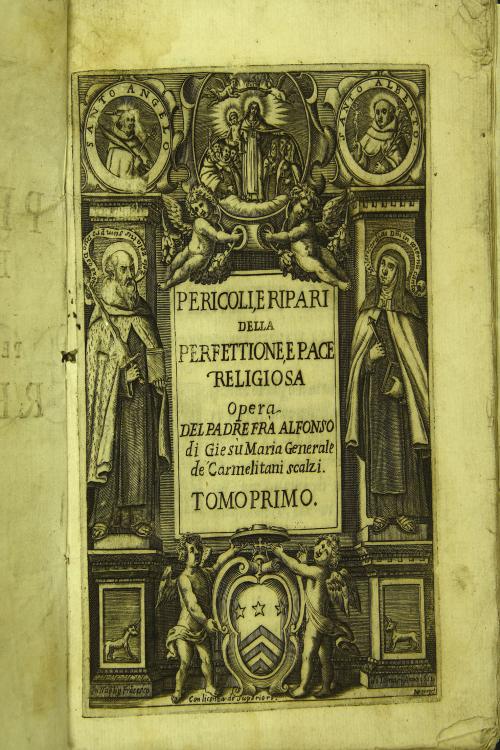 SANTO ANGELO
SANTO ALBERTO
PERICOLI, E RIPARI
DELLA
PERFETTIONE, E PACE
RELIGIOSA
Opera
DEL PADRE FRA ALFONSO
di Giesù Maria Generale
de' Carmelitani scalzi.
TOMO PRIMO.
Con licenza de' Superiori.